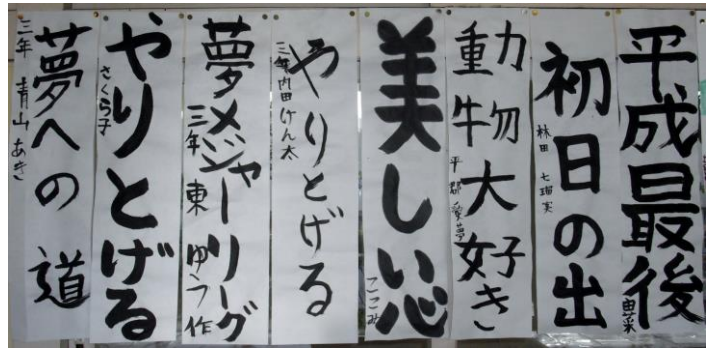 平成最後
由菜
初日の出
林田 七瑠実
動物大好き
平 郡 愛夢
美しい心
ここみ
やりとげる
三年 内田 けん太
夢メジャーリーグ
三年 東 ゆう作
やりとげる
さくら子
夢への道
三年 青山 あき